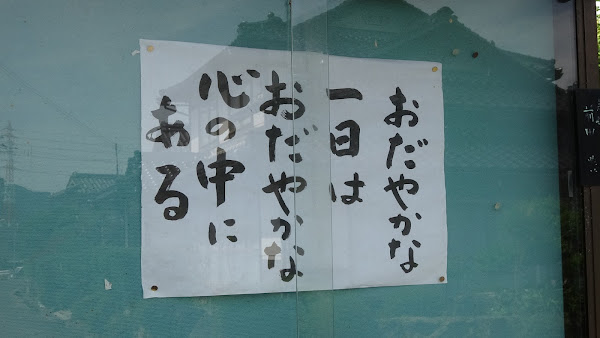 おだやかな
一日は
おだやかな
心の中に
ある